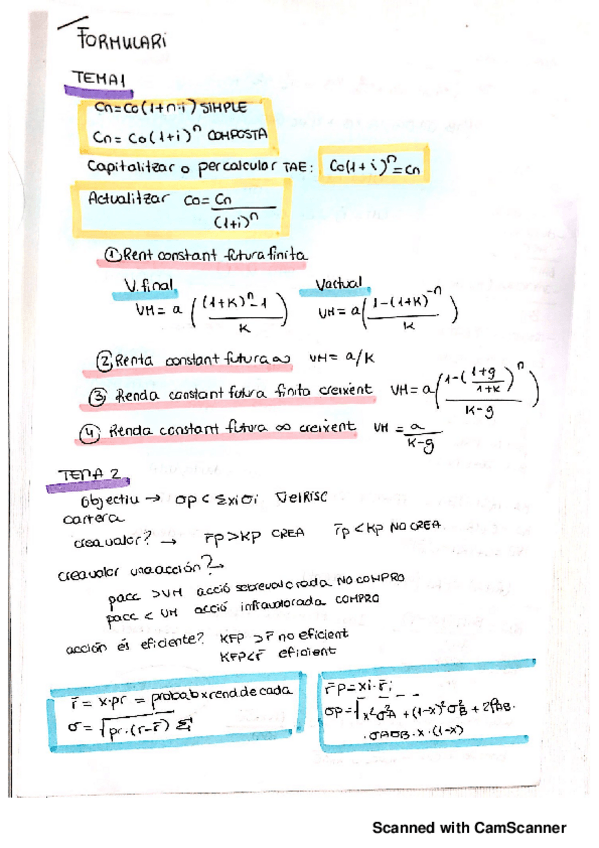 FORMULARI
TEMA 1
Cn=Co(1+n·i) SIMPLE
Cn= Co(1+i)^n COMPOSTA
Capitalitzar o per calcular TAE: Co(1+i)^n=Cn
Actualitzar Co= Cn/(1+i)^n
① Rent constant futura finita
V.final V.actual
VM= a ( ((1+K)^n-1)/K ) VM= a( (1-(1+K)^-n)/K )
② Renta constant futura ∞ VM= a/K
③ Renda constant futura finita creixent VM= a( (1-((1+g)/(1+K))^n)/(K-g) )
④ Renda constant futura ∞ creixent VM = a/(K-g)
TEMA 2
Objectiu → σp < Σxiσi ∇el RISC
cartera
crea valor? → r̄p>Kp CREA r̄p<Kp NO CREA
crea valor una acción?
pacc >VM acció sobrevalorada NO COMPRO
pacc < VM acció infravalorada COMPRO
acción és eficiente? KFP >r̄ no eficient
KFP<r̄ eficient
r̄ = x·pr = probab x rend de cada
σ= √pr·(r-r̄) Σ
r̄p=xi·r̄i
σp=√x²σ²A +(1-x)²σ²B + 2ρAB·
·σAσB·x·(1-x)
Scanned with CamScanner